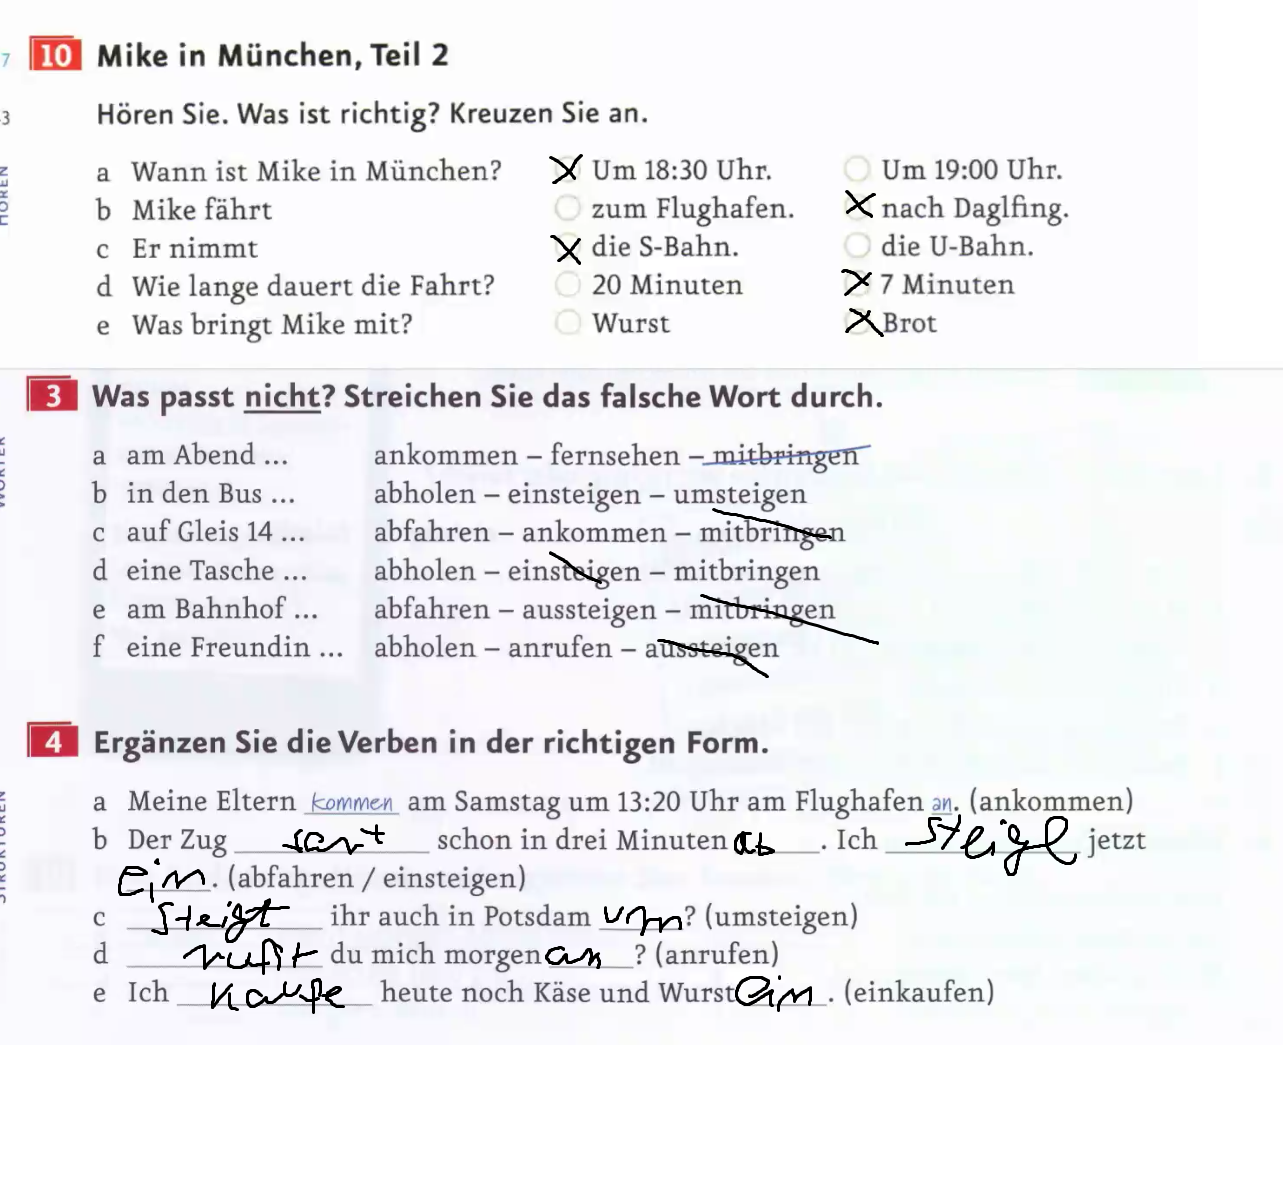 7 10 Mike in München, Teil 2
3 Hören Sie. Was ist richtig? Kreuzen Sie an.
HÖREN
a Wann ist Mike in München? X Um 18:30 Uhr. Um 19:00 Uhr.
b Mike fährt zum Flughafen. X nach Daglfing.
c Er nimmt X die S-Bahn. die U-Bahn.
d Wie lange dauert die Fahrt? 20 Minuten X 7 Minuten
e Was bringt Mike mit? Wurst X Brot
3 Was passt nicht? Streichen Sie das falsche Wort durch.
WÖRTER
a am Abend ... ankommen – fernsehen – mitbringen
b in den Bus ... abholen – einsteigen – umsteigen
c auf Gleis 14 ... abfahren – ankommen – mitbringen
d eine Tasche ... abholen – einsteigen – mitbringen
e am Bahnhof ... abfahren – aussteigen – mitbringen
f eine Freundin ... abholen – anrufen – aussteigen
4 Ergänzen Sie die Verben in der richtigen Form.
STRUKTUREN
a Meine Eltern kommen am Samstag um 13:20 Uhr am Flughafen an. (ankommen)
b Der Zug schon in drei Minuten ab. Ich steige jetzt
ein. (abfahren / einsteigen)
c steigt ihr auch in Potsdam um? (umsteigen)
d rufst du mich morgen an? (anrufen)
e Ich kaufe heute noch Käse und Wurst ein. (einkaufen)